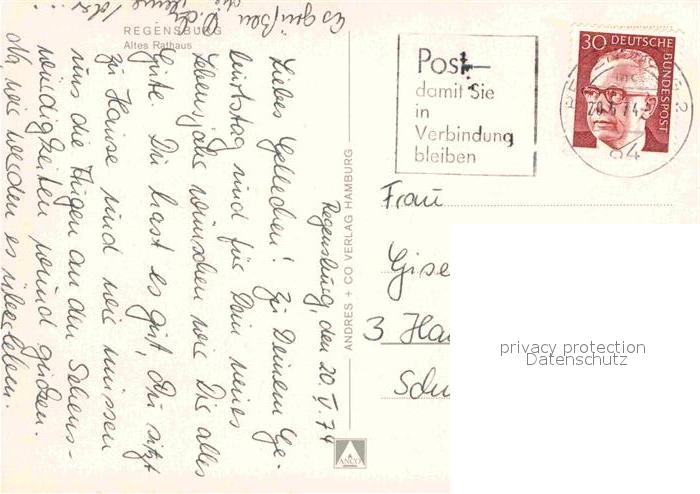 REGENSBURG
Altes Rathaus
Regensburg, den 20. V. 74
Liebes Gellechen! Zu Deinem Ge-
burtstag und für Dein neues
Lebensjahr wünschen wir Dir alles
Gute. Du hast es gut, Du sitzt
zu Hause und wir müssen
uns die Augen an den Sehens-
würdigkeiten wund gucken.
Na, wir werden es überleben.
Es grüßen Dich
ANDRES + CO VERLAG HAMBURG
ANCO
Post
damit Sie
in
Verbindung
bleiben
30 DEUTSCHE
BUNDESPOST
20.5.74
84
Frau
Gise
3 Han
Schu
privacy protection
Datenschutz